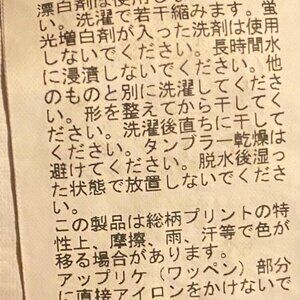 漂白剤は使用し
い。洗濯で若干縮みます。蛍
光増白剤が入った洗剤は使用
しないでください。長時間水
に浸漬しないでください。他
のものと別に洗濯してくださ
い。形を整えてから干してく
ださい。洗濯後直ちに干して
ください。タンブラー乾燥は
避けてください。脱水後湿っ
た状態で放置しないでくださ
い。
この製品は総柄プリントの特
性上、摩擦、雨、汗等で色が
移る場合があります。
アップリケ(ワッペン)部分
に直接アイロンをかけないで